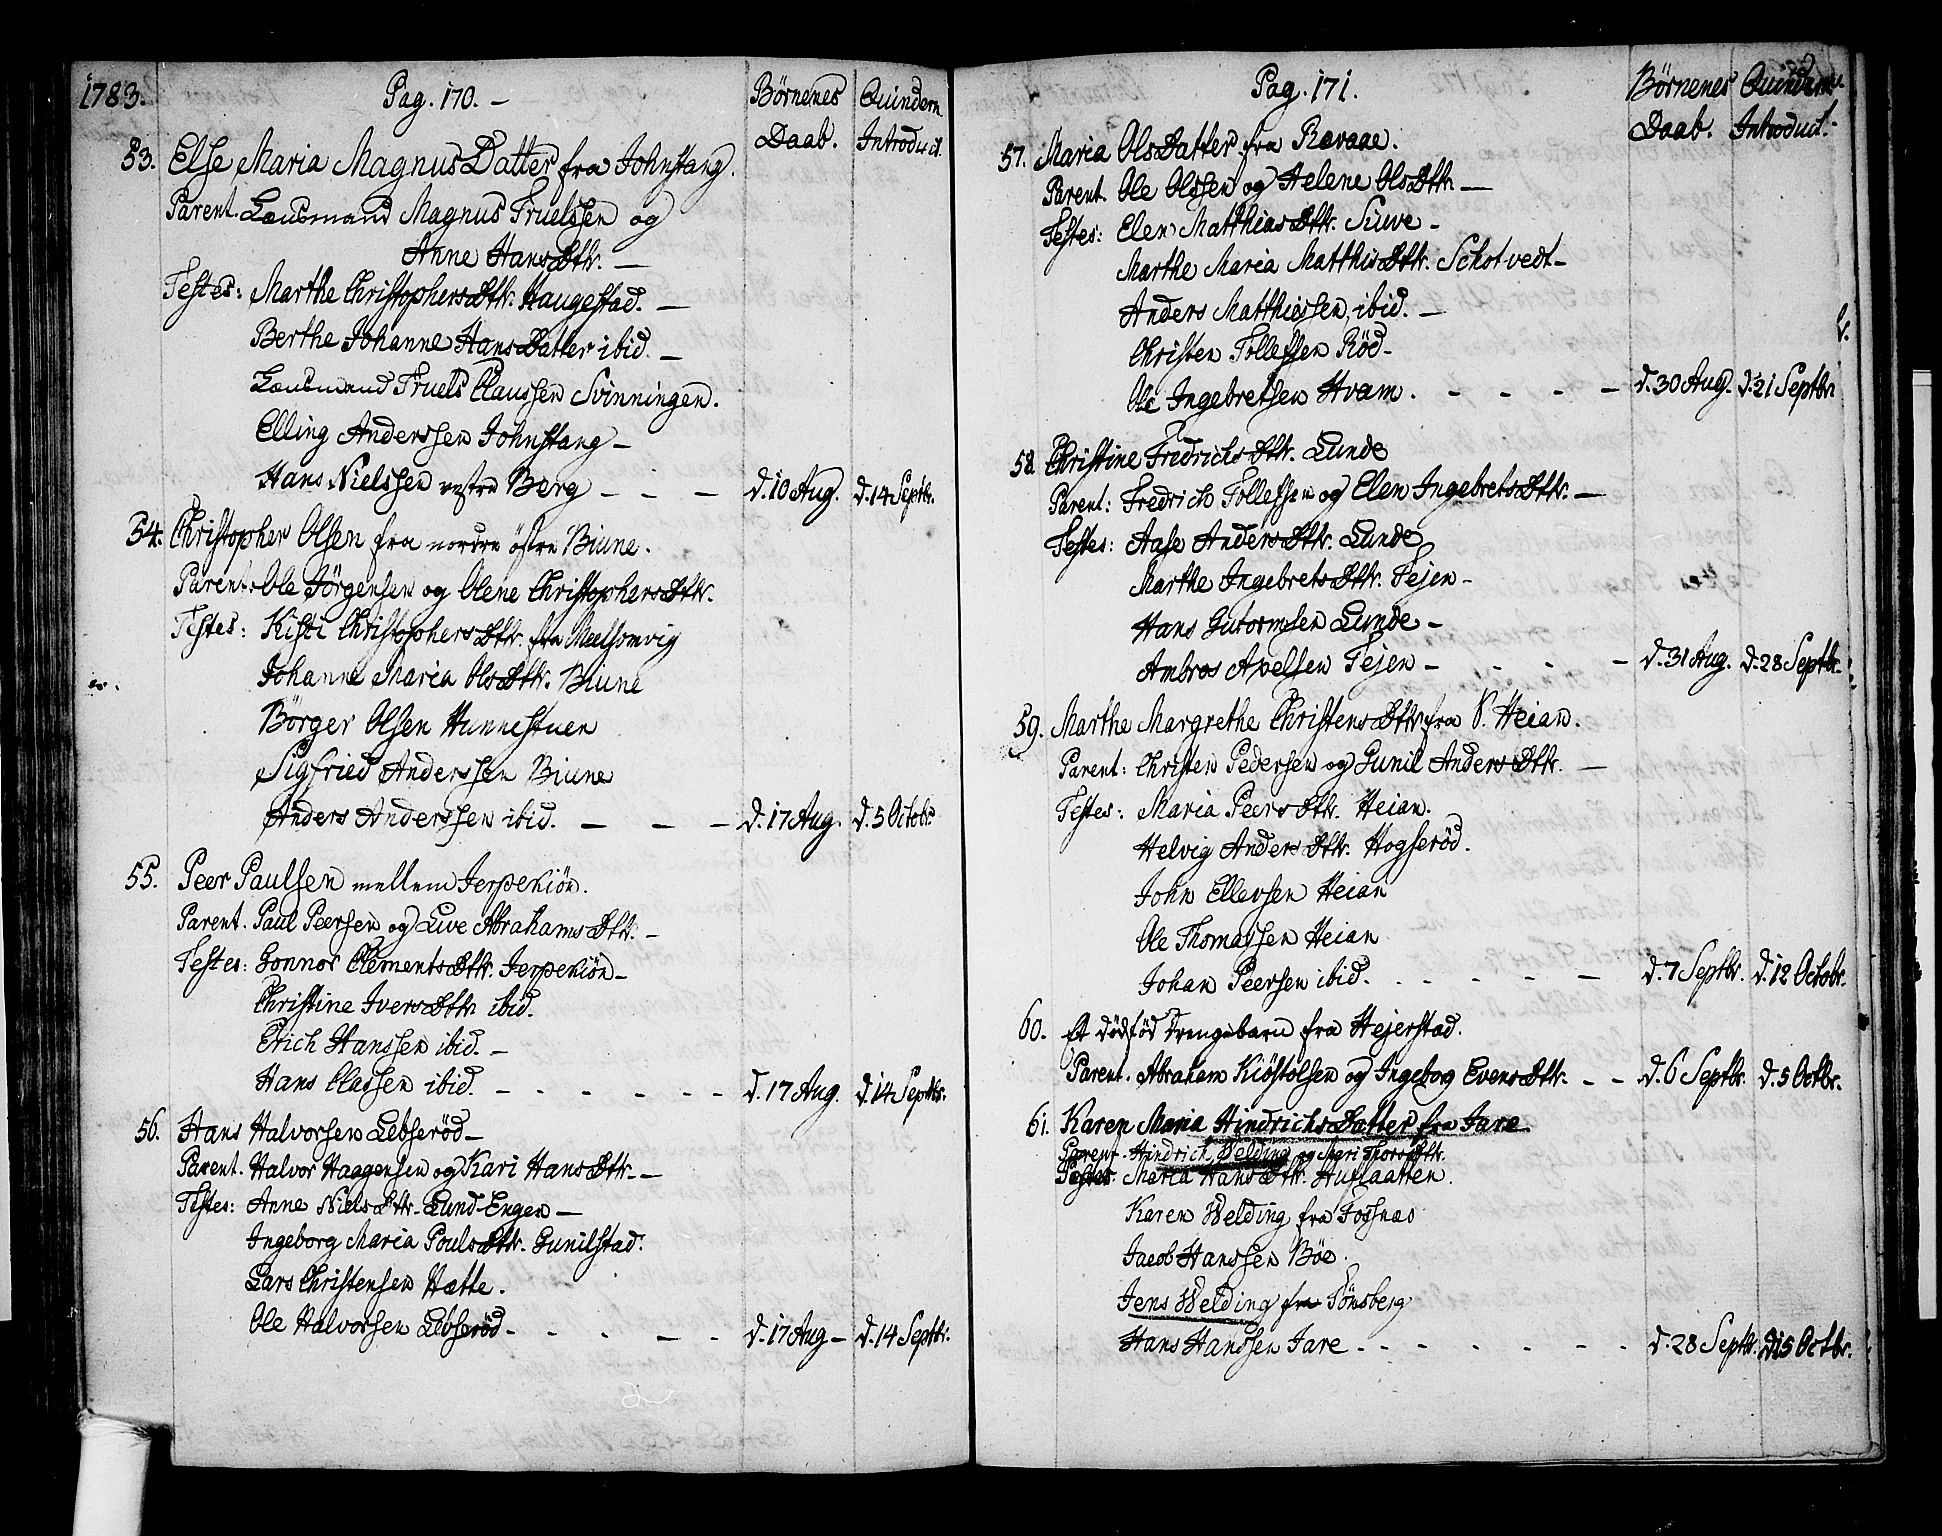 1783.
Pag. 170. —
Børnenes Daab.
Quindern. Introduct.
53. Else Maria MagnusDatter fra Johnstang.
Parent. Lænsmand Magnus Truelssen og
Anne HansDttr. —
Testes: Marthe ChristophersDttr. Haugestad. —
Berthe Johanne HansDatter ibid. —
Lænsmand Truels Claussen Svinningen.
Elling Anderssen Johnstang —
Hans Nielssen vestre Berg — — — d. 10 Aug. d. 14 Septbr.
54. Christopher Olsen fra nordre østre Biune.
Parent. Ole Jörgensen og Olene ChristophersDttr.
Testes: Kisti ChristophersDttr. fra Meelsomvig
Johanne Maria OlsDttr. Biune
Börger Olsen Hunnestuen
Sigfried Anderssen Biune
Anders Anderssen ibid. — — — d. 17 Aug. d. 5 Octobr.
55. Peer Paulsen mellem Jerpekiön.
Parent. Paul Peersen og Live AbrahamsDttr. —
Testes: Gonnor ClementsDttr. Jerpekiön —
Christine IversDttr ibid.
Erich Hanssen ibid. —
Hans Classen ibid. — — — — — — d. 17 Aug. d. 14 Septbr.
56. Hans Halvorsen Lebseröd —
Parent. Halvor Haagensen og Kari HansDttr. —
Testes: Anne NielsDttr. Lund-Engen —
Ingeborg Maria PoulsDttr. Gunilstad.
Lars Christensen Hætte.
Ole Halvorsen Lebseröd - - - — — d. 17 Aug — d. 14 Septbr.
Pag. 171.
Børnenes Daab.
Quindern. Introduct.
57. Maria OlsDatter fra Rævaae.
Parent. Ole Olssen og Helene OlsDttr —
Testes: Elen MatthiasDttr. Siuve —
Marthe Maria MatthisDttr. Schotvedt —
Anders Matthiessen, ibid. —
Christen Tollefsen Röd —
Ole Ingebretsen Hvam. - - - - — d. 30 Aug. d. 21 Septbr.
58. Christine FredrichsDttr. Lunde
Parent: Fredrich Tollefsen og Elen IngebretsDttr. —
Testes: Aase AndersDttr. Lunde
Marthe IngebretsDttr. Tejen —
Hans Gutormsen Lunde —
Ambros Axelsen Tejen — - - - — d. 31 Aug. d. 28 Septbr.
59. Marthe Margrethe ChristensDttr fra S. Heian.
Parent: Christen Pedersen og Gunil AndersDttr. —
Testes: Maria PeersDttr. Heian.
Helvig AndersDttr. Hogseröd.
John Ellevsen Heian
Ole Thomassen Heian
Johan Peersen ibid. - - - - — d. 7 Septbr. d. 12 Octobr.
60. Et dödföd Drengebarn fra Hejerstad.
Parent. Abraham Kiöstolsen og Ingeborg EvensDttr. - — d. 6 Septbr. d. 5 Octbr.
61. Karen Maria HindrichsDatter fra Jare.
Parent. Hindrich Velding og Mari ThorsDttr.
Testes: Maria HansDttr. Huflaatten.
Karen Welding fra Fossnæs
Jacob Hanssen Böe.
Jens Welding fra Tönsberg
Hans Hanssen Jare - - - - - - d. 28 Septbr. d. 15 Octbr.